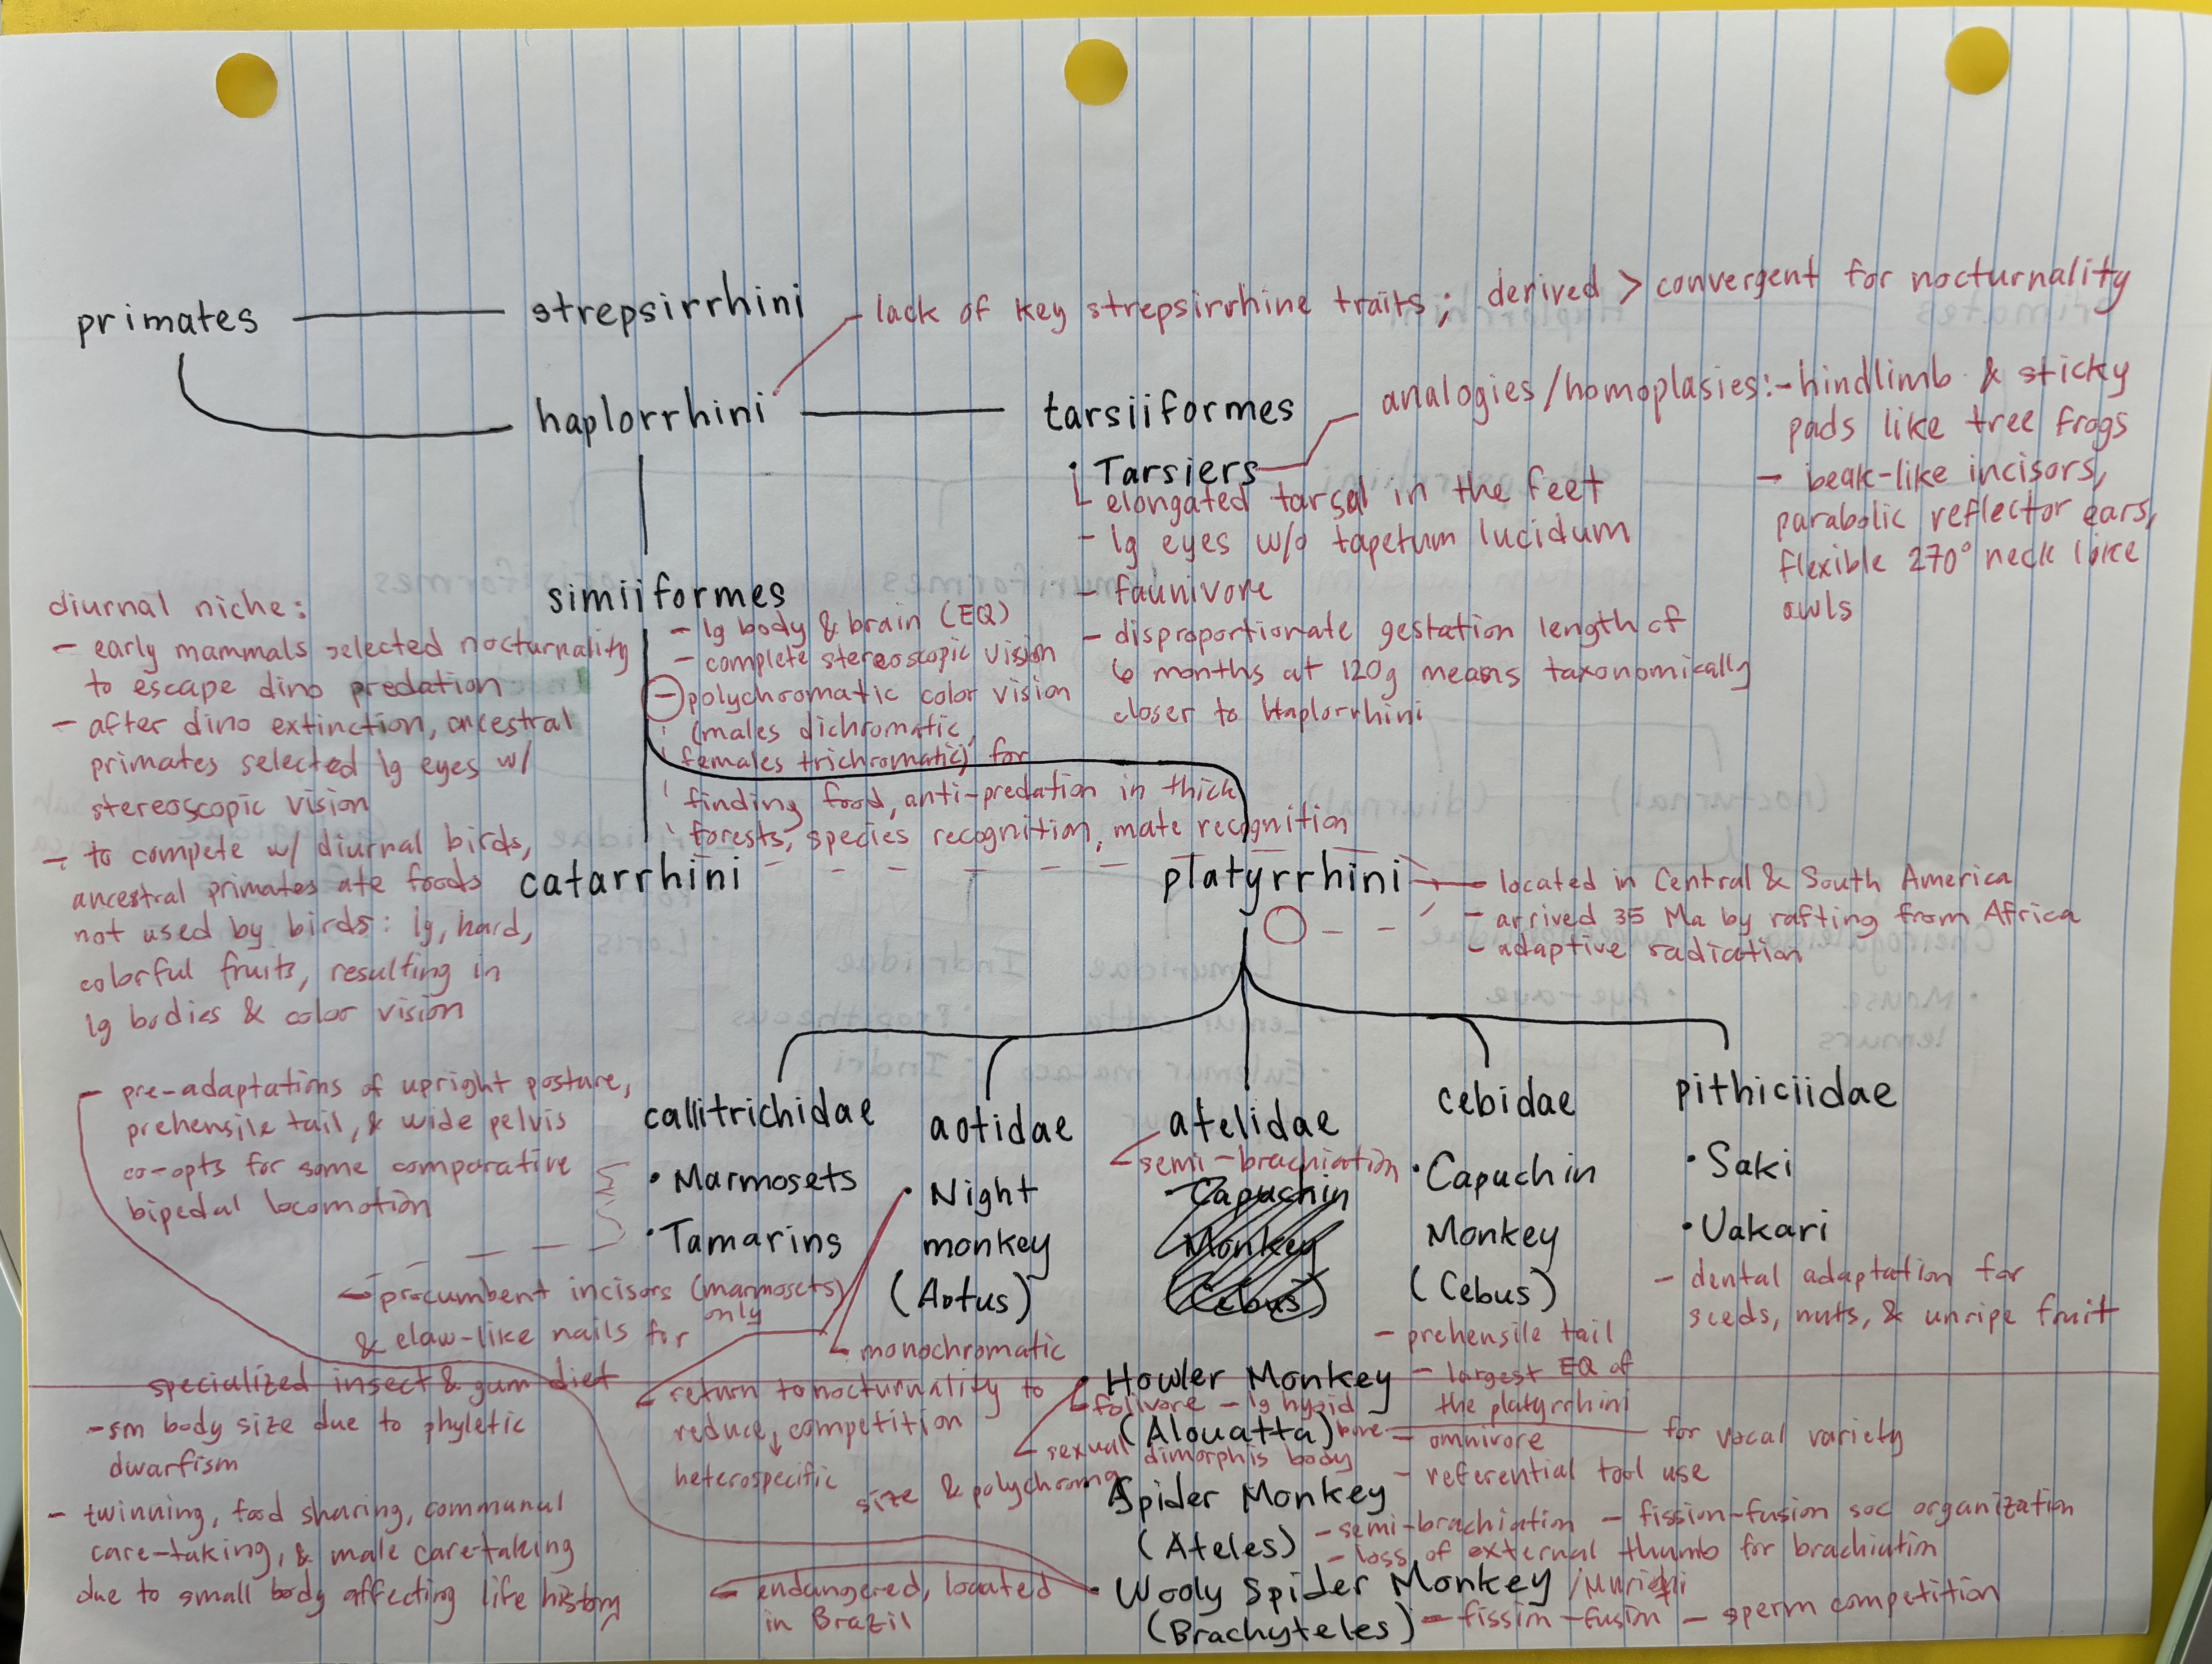 primates
strepsirrhini
- lack of key strepsirrhine traits; derived > convergent for nocturnality
haplorrhini
tarsiiformes
analogies/homoplasies: - hindlimb & sticky
pads like tree frogs
- beak-like incisors,
parabolic reflector ears,
flexible 270° neck like
owls
• Tarsiers
elongated tarsal in the feet
- lg eyes w/o tapetum lucidum
- faunivore
- disproportionate gestation length of
6 months at 120g means taxonomically
closer to Haplorrhini
simiiformes
- lg body & brain (EQ)
- complete stereoscopic vision
- polychromatic color vision
(males dichromatic,
females trichromatic) for
finding food, anti-predation in thick
forests, species recognition, mate recognition
diurnal niche:
- early mammals selected nocturnality
to escape dino predation
- after dino extinction, ancestral
primates selected lg eyes w/
stereoscopic vision
- to compete w/ diurnal birds,
ancestral primates ate foods
not used by birds: lg, hard,
colorful fruits, resulting in
lg bodies & color vision
catarrhini
platyrrhini
- located in Central & South America
- arrived 35 Ma by rafting from Africa
- adaptive radiation
- pre-adaptations of upright posture,
prehensile tail, & wide pelvis
co-opts for some comparative
bipedal locomotion
callitrichidae
• Marmosets
• Tamarins
- procumbent incisors (marmosets)
only
& claw-like nails for
specialized insect & gum diet
- sm body size due to phyletic
dwarfism
- twinning, food sharing, communal
care-taking, & male care-taking
due to small body affecting life history
aotidae
• Night
monkey
(Aotus)
monochromatic
return to nocturnality to
reduce competition
heterospecific
atelidae
semi-brachiation
• Capuchin
Monkey
(Cebus)
• Howler Monkey
folivore - lg hyoid
(Alouatta) bone
for vocal variety
sexual dimorphis body
size & polychroma
Spider Monkey
(Ateles)
- semi-brachiation - fission-fusion soc organization
- loss of external thumb for brachiation
• Wooly Spider Monkey /Muriqui
(Brachyteles)
- fission-fusion - sperm competition
endangered, located
in Brazil
cebidae
• Capuchin
Monkey
(Cebus)
- prehensile tail
- largest EQ of
the platyrrhini
- omnivore
- referential tool use
pithiciidae
• Saki
• Uakari
- dental adaptation for
seeds, nuts, & unripe fruit